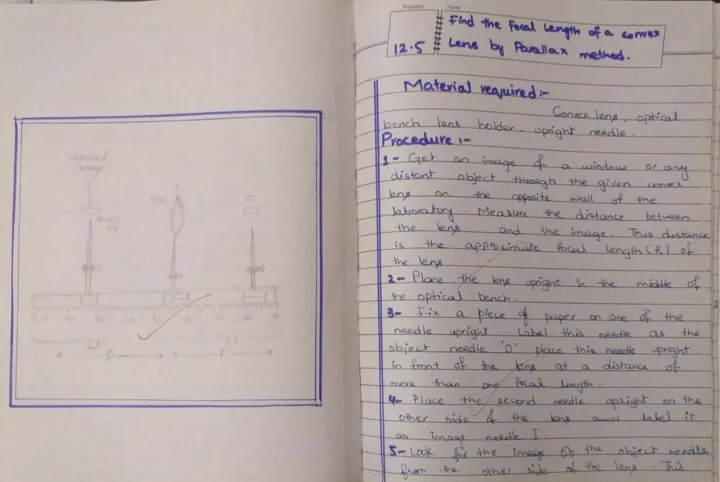 inverted
Image
L
O
I
P
12.5
Find the focal Length of a convex
Lens by Parallax method.
Material required:-
Convex lens, optical
bench lens holder, upright needle.
Procedure :-
1- Get an image of a window or any
distant object through the given convex
lens on the opposite wall of the
laboratory. Measure the distance between
the lens and the image. This distance
is the approximate focal length of
the lens.
2- Place the lens upright in the middle of
the optical bench.
3- Fix a piece of paper on one of the
needle upright. Label this needle as the
object needle 'O'. place this needle upright
in front of the lens at a distance of
more than one focal length.
4- Place the second needle upright on the
other side of the lens and label it
as image needle I.
5- Look for the image of the object needle
from the other side of the lens. This